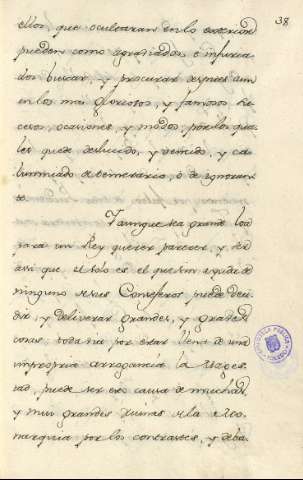 38
ellos que ocultaran en lo exterior
pueden como agraviados e injuria
dos buscar, y procurar despues aun
en los mas gloriosos, y famosos he
cesos, ocasiones, y modos, por los qua
les quede deslucido, y vencido, y ca
lumniado de temerario, ó de ignoran
te.
Y aunque sea grande loa
para un Rey querer parecer, y ser
asi que el solo es el que sin ayuda de
ninguno de sus Consejeros pueda deci
dir, y deliverar grandes, y graves
cosas; todavia por estar llena de una
impropria arrogancia la Mages
tad, puede ser eso causa de muchas,
y muy grandes ruinas de la Mo
narquia por los contrastes, y deba
BIBLIOTECA PUBLICA
TOLEDO